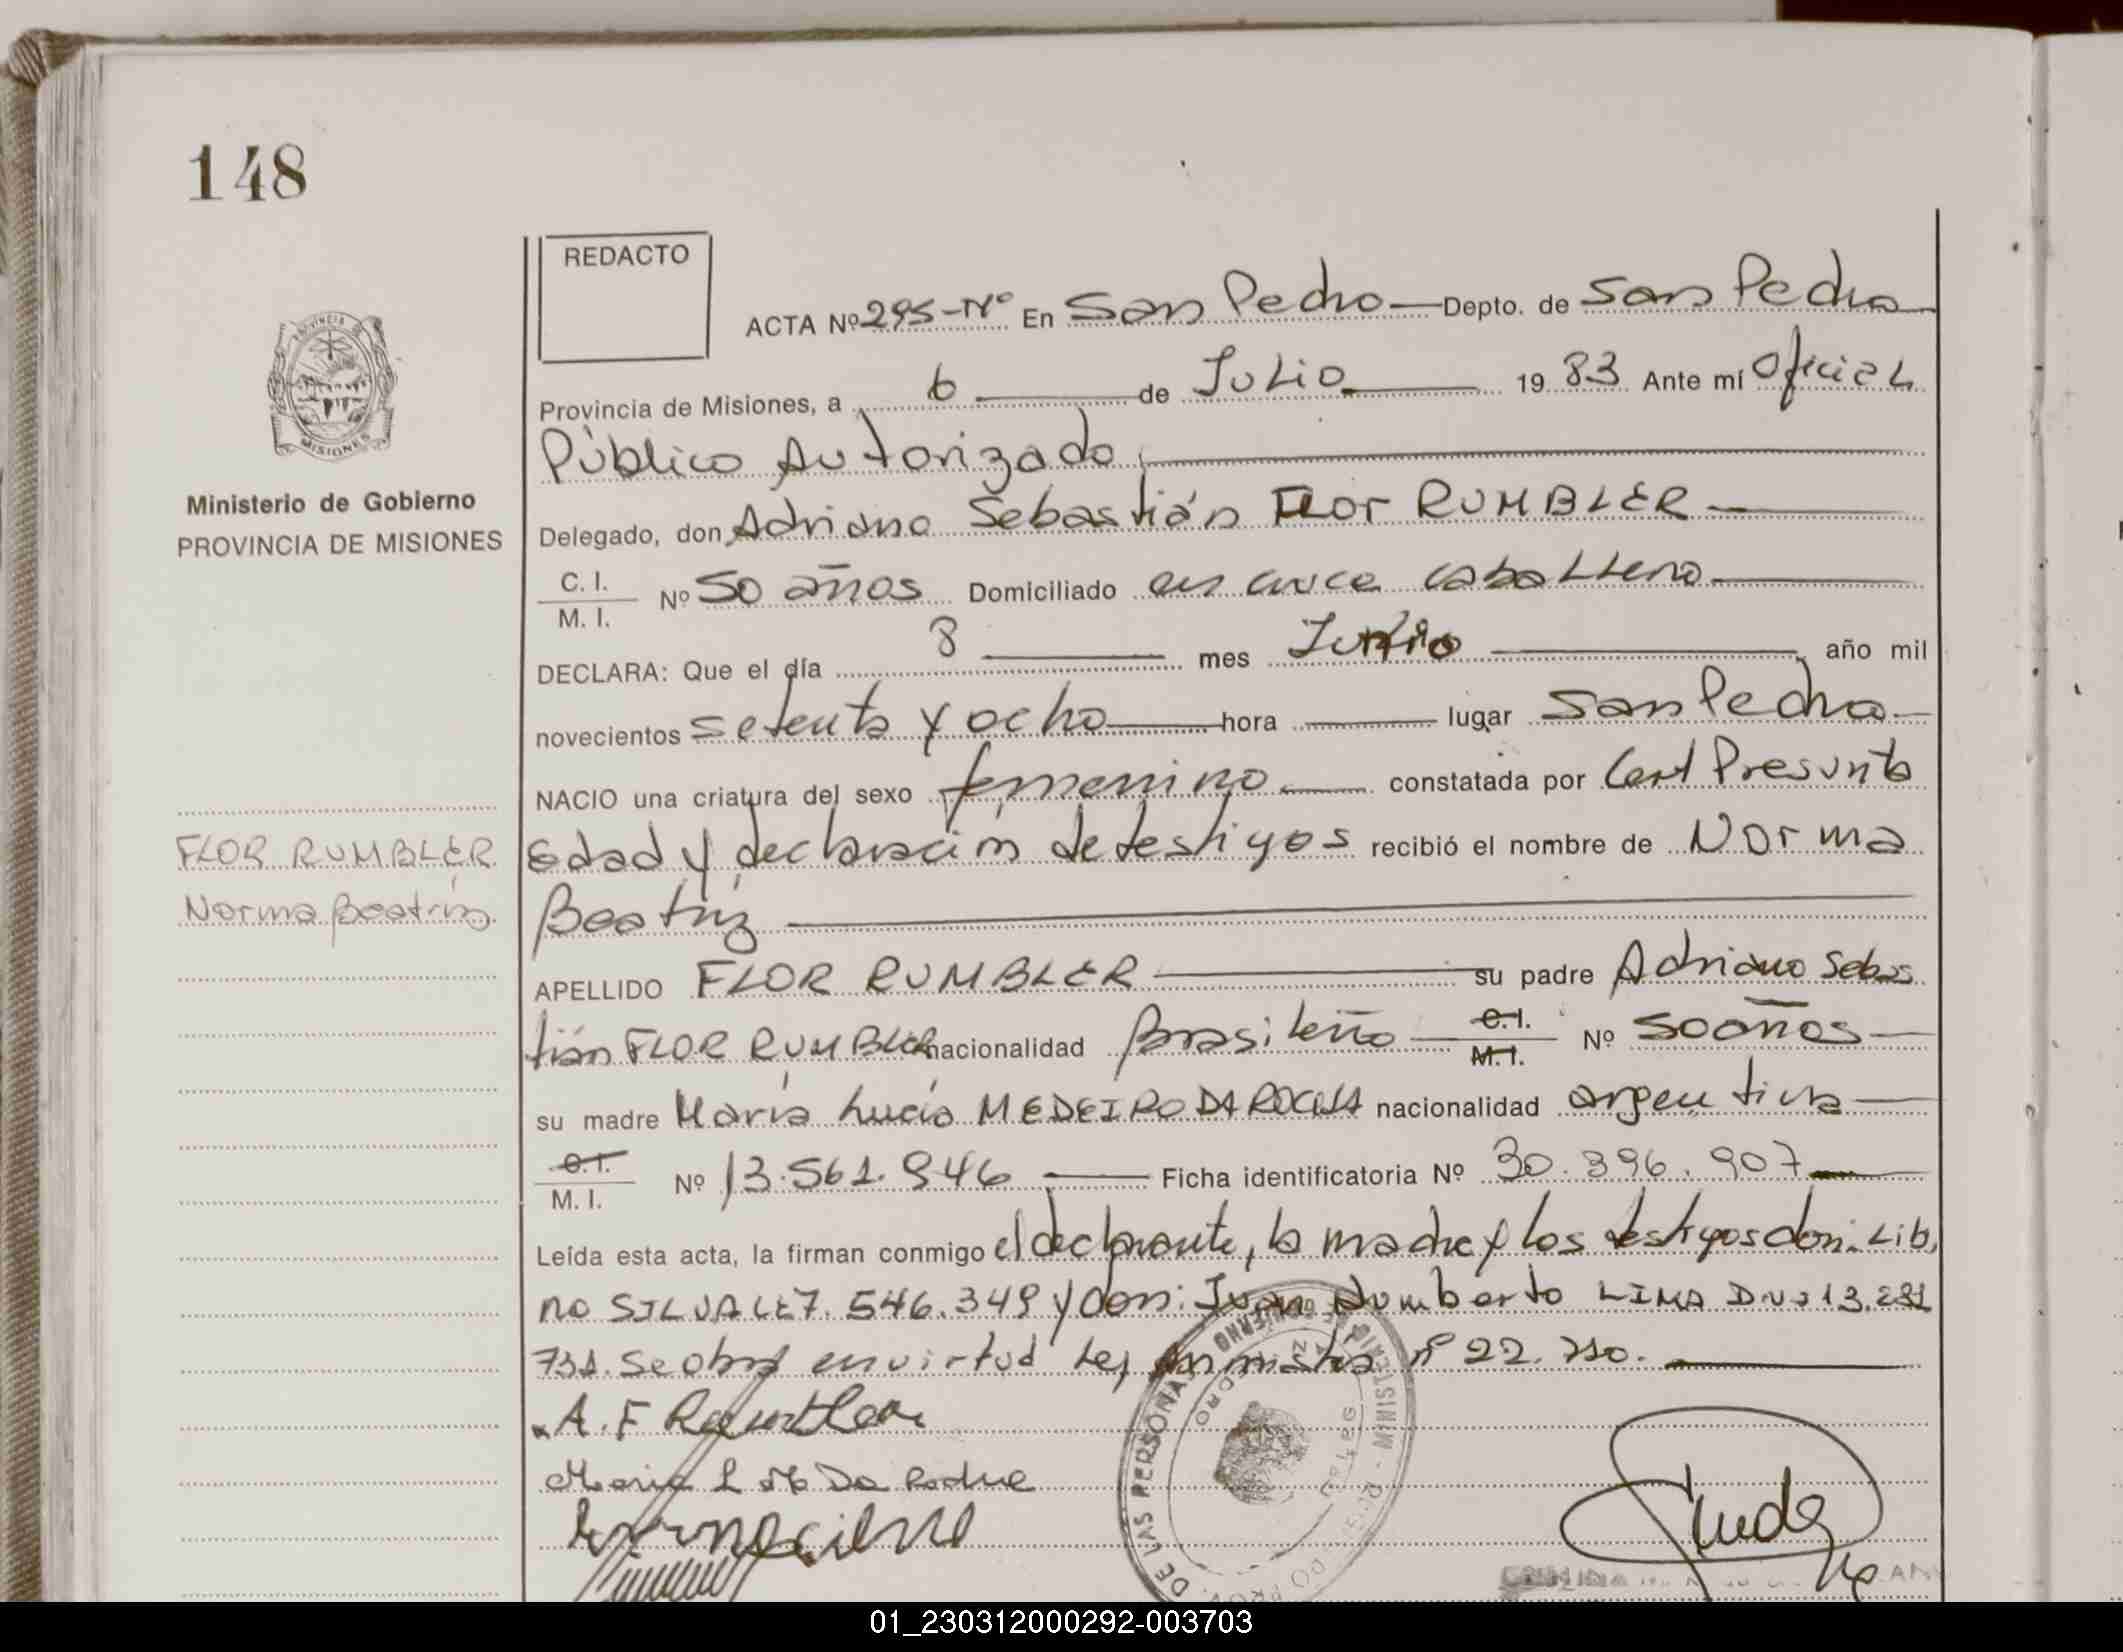 148
REDACTO
ACTA Nº 295-Nº En San Pedro Depto. de San Pedro
Provincia de Misiones, a 6 de Julio 1983 Ante mí Oficial
Público Autorizado
Delegado, don Adriano Sebastián FLOR RUMBLER
C. I.
M. I. Nº 50 años Domiciliado en cruce caballero
DECLARA: Que el día 8 mes Junio año mil
novecientos setenta y ocho hora lugar San Pedro
NACIO una criatura del sexo femenino constatada por Cert Presunta
Edad y declaración de testigos recibió el nombre de Norma
Beatriz
APELLIDO FLOR RUMBLER su padre Adriano Sebas
tián FLOR RUMBLER nacionalidad Brasileño C.I. M.I. Nº 50 años
su madre María Lucía MEDEIRO DA ROCHA nacionalidad argentina
C.I.
M. I. Nº 13.561.946 Ficha identificatoria Nº 30.396.907
Leída esta acta, la firman conmigo el declarante, la madre y los testigos don: Lib,
no SILVA LE 7.546.349 y don: Juan Humberto LIMA DNI 13.291
731. Se obra en virtud Ley Amnistía nº 22.710.
A. F Rumbler
Maria L M Da Rocha
Ministerio de Gobierno
PROVINCIA DE MISIONES
PROVINCIA DE
MISIONES
FLOR RUMBLER
Norma Beatriz
DE LAS PERSONAS
MINISTERIO DE GOBIERNO
01_230312000292-003703